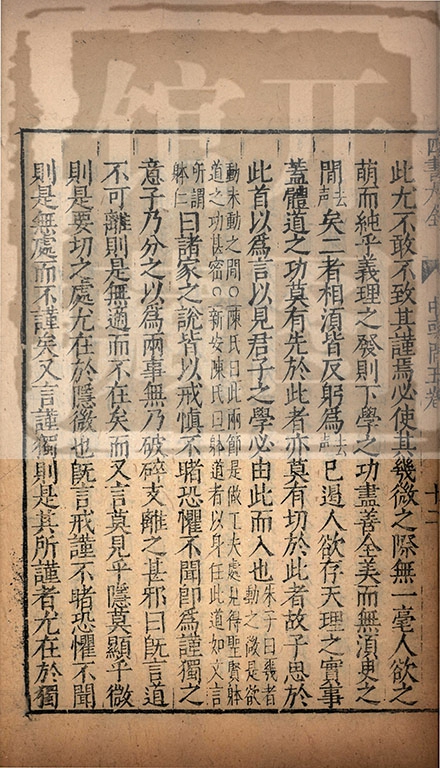 此尤不敢不致其謹焉必使其幾微之際無一毫人欲之
萌而純乎義理之發則下學之功盡善全美而無須臾之
間去聲矣二者相須皆反躬為去聲己遏人欲存天理之實事
蓋體道之功莫有先於此者亦莫有切於此者故子思於
此首以為言以見君子之學必由此而入也朱子曰幾者動之微是欲
動未動之間○陳氏曰此兩節是做工夫處見得聖賢體
道之功甚密○新安陳氏曰體道者以身任此道如文言
所謂體仁曰諸家之說皆以戒慎不睹恐懼不聞即為謹獨之
意子乃分之以為兩事無乃破碎支離之甚邪曰既言道
不可離則是無適而不在矣而又言莫見乎隱莫顯乎微
則是要切之處尤在於隱微也既言戒謹不睹恐懼不聞
則是無處而不謹矣又言謹獨則是其所謹者尤在於獨